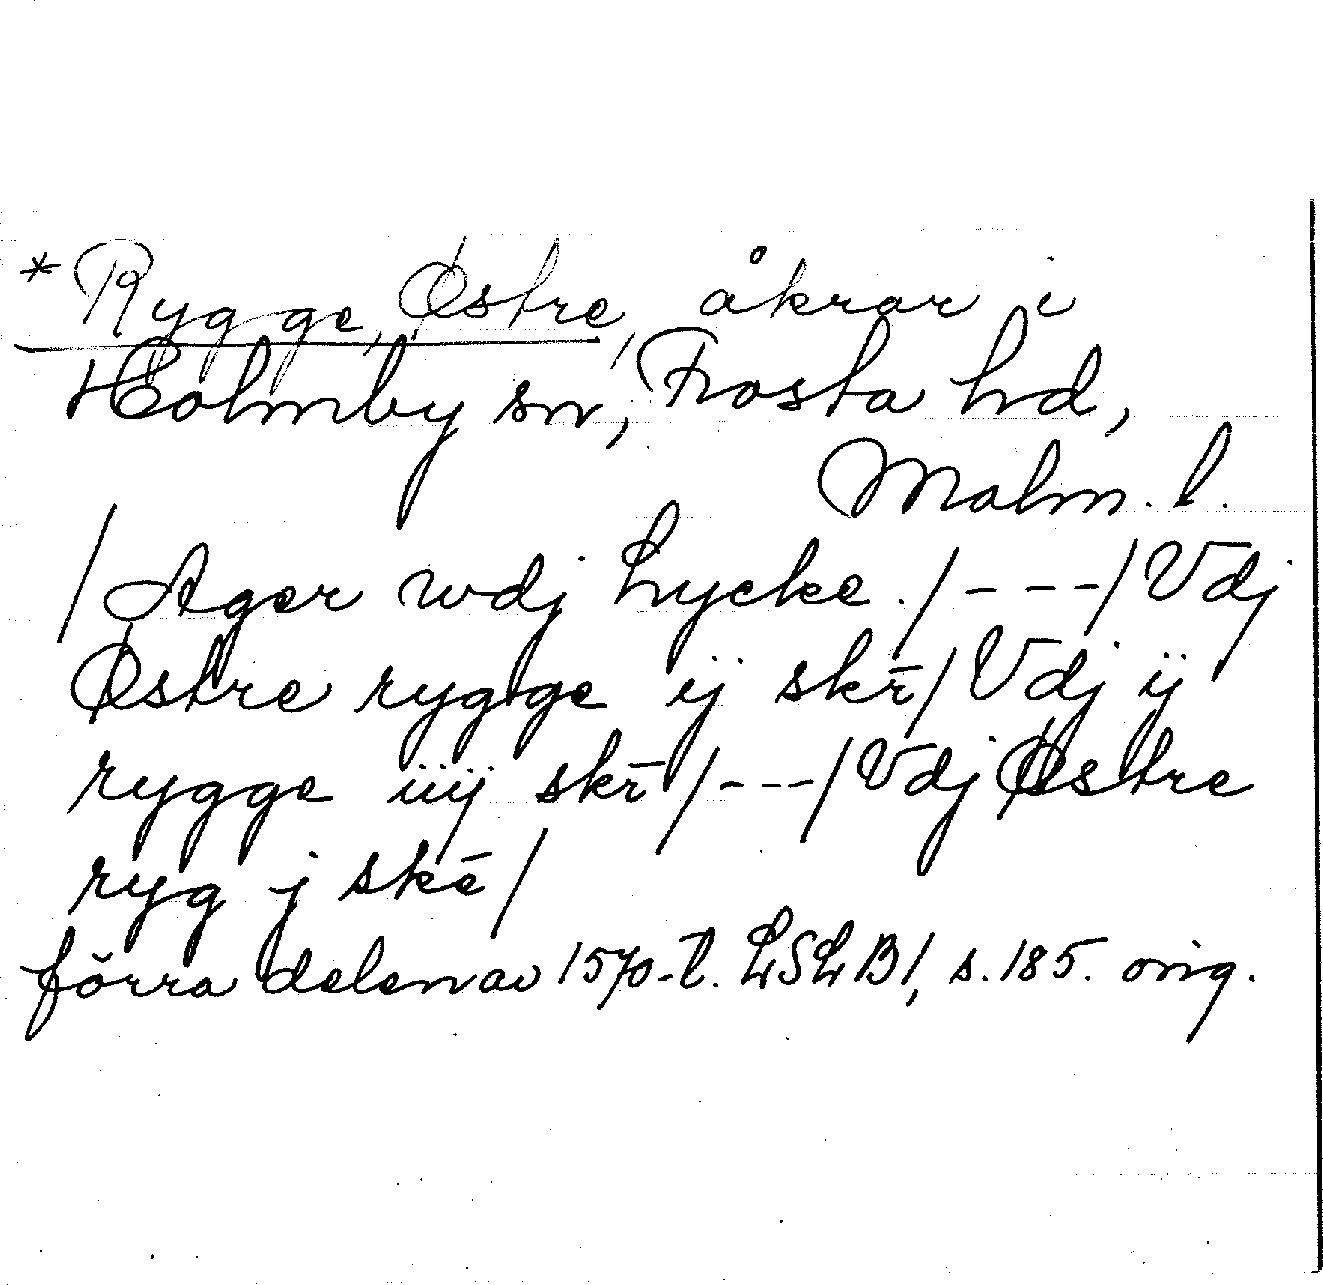 * Rygge, Østre, åkrar i
Holmby sn, Frosta hd,
Malm. l.
/Ager wdj Lycke./---/Vdj
Østre rygge ij skr̄/Vdj ij
rygge iiij skr̄/---/Vdj Østre
ryg j skē/
förra delen av 1570-t. LSLB1, s.185. orig.